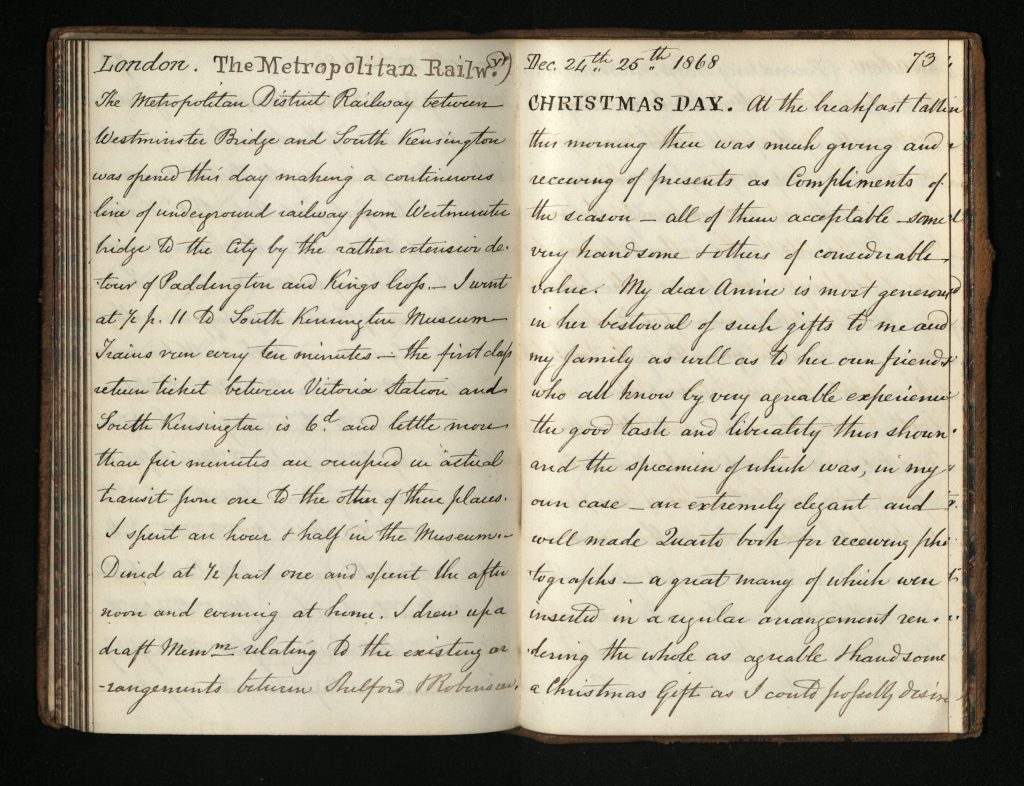 London. The Metropolitan Railw.y)
The Metropolitan District Railway between
Westminster Bridge and South Kensington
was opened this day making a continuous
line of underground railway from Westminster
bridge to the City by the rather extensive de-
tour of Paddington and Kings Cross. I went
at ½ p. 11 to South Kensington Museum
Trains run every ten minutes – the first class
return ticket between Victoria Station and
South Kensington is 6d and little more
than five minutes are occupied in actual
transit from one to the other of these places.
I spent an hour & half in the Museum.
Dined at ½ past one and spent the after
noon and evening at home. I drew up a
draft Memm relating to the existing ar
-rangements between Shelford & Robinson.
Dec. 24th 25th 1868 73
CHRISTMAS DAY. At the breakfast table
this morning there was much giving and
receiving of presents as Compliments of
the season – all of them acceptable – some
very handsome & others of considerable
value. My dear Annie is most generous
in her bestowal of such gifts to me and
my family as well as to her own friends
who all know by very agreable experience
the good taste and liberality thus shown
and the specimen of which was, in my
own case – an extremely elegant and
well made Quarto book for receiving pho
tographs – a great many of which were
inserted in a regular arrangement ren-
dering the whole as agreable & handsome
a Christmas Gift as I could possibly desire